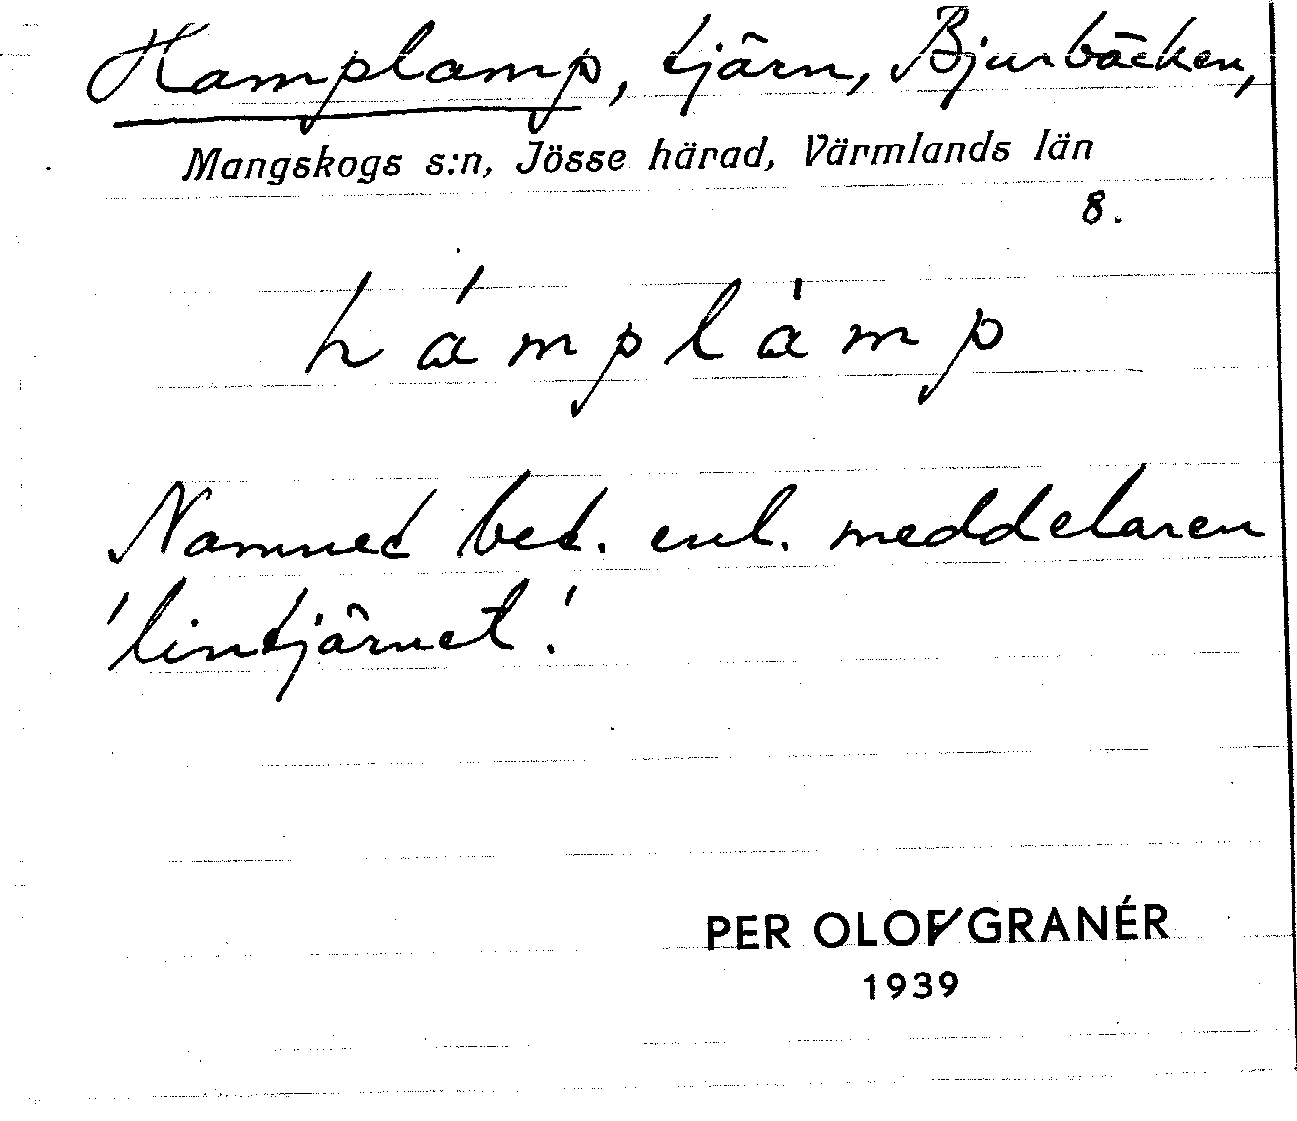 Hamplamp, tjärn, Bjurbäcken,
Mangskogs s:n, Jösse härad, Värmlands län
8.
hámplámp
Namnet bet. enl. meddelaren
'lintjärnet'.
PER OLOF GRANÉR
1939